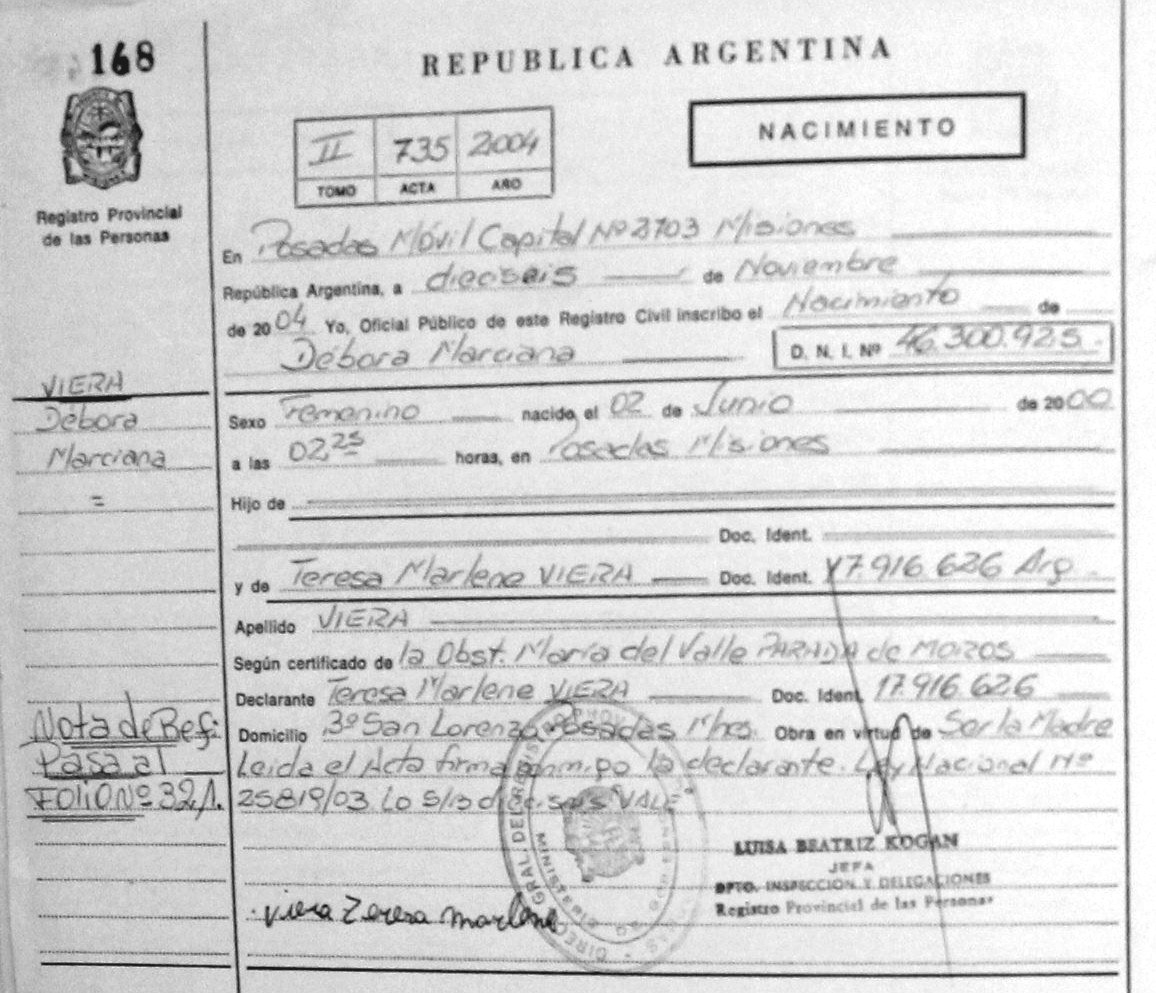 168
REPUBLICA ARGENTINA
NACIMIENTO
II 735 2004
TOMO ACTA AÑO
Registro Provincial
de las Personas
En Posadas Móvil Capital Nº 2703 Misiones
República Argentina, a dieciseis de Noviembre
de 2004 Yo, Oficial Público de este Registro Civil inscribo el Nacimiento de
Débora Marciana D. N. I. Nº 46.300.925.
VIERA
Débora
Marciana
=
Sexo Femenino nacido el 02 de Junio de 2000
a las 02,25 horas, en Posadas Misiones
Hijo de
Doc. Ident.
y de Teresa Marlene VIERA Doc. Ident. 17.916.626 Arg.
Apellido VIERA
Según certificado de la Obst. María del Valle PARADA de MOROS
Declarante Teresa Marlene VIERA Doc. Ident. 17.916.626
Domicilio Bº San Lorenzo Posadas Mnes. Obra en virtud de Ser la Madre
Leida el Acta firma conmigo la declarante. Ley Nacional Nº
25819/03. Lo S/b dieciseis VALE
Nota de Ref:
Pasa al
FOLIO Nº 32/1.
LUISA BEATRIZ KOGAN
JEFA
DPTO. INSPECCION Y DELEGACIONES
Registro Provincial de las Personas
Viera Teresa Marlene